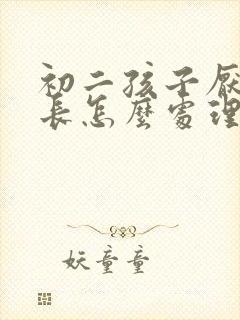 初二孩子厌
长怎麼處理
妖童童